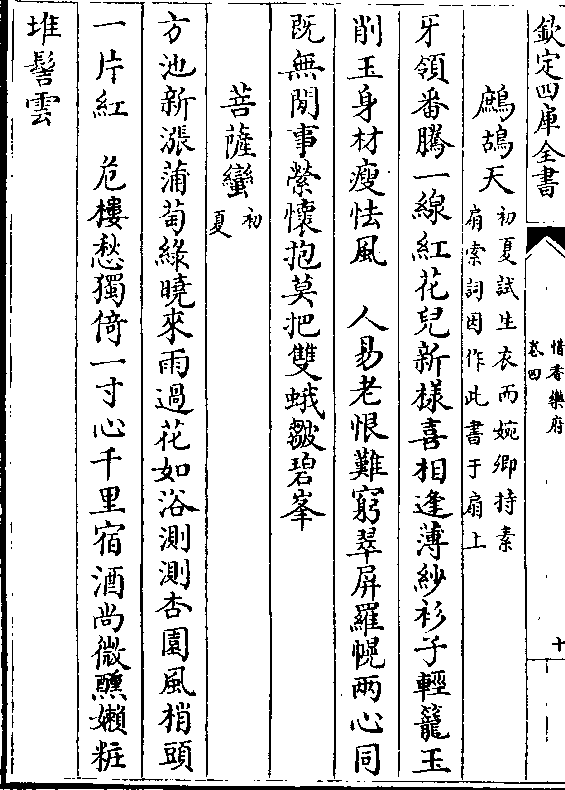 欽定四庫全書
鷓鴣天
初夏試生衣而婉卿持素
扇索詞因作此書于扇上
牙領番騰一線紅花兒新樣喜相逢薄紗衫子輕籠玉
削玉身材瘦怯風　人易老恨難窮翠屏羅幌兩心同
既無閒事縈懷抱莫把雙蛾皺碧峯
菩薩蠻
初
夏
方池新漲蒲萄綠曉來雨過花如浴測測杏園風梢頭
一片紅　危樓愁獨倚一寸心千里宿酒尚微醺嬾粧
堆髻雲
惜香樂府
卷四
十